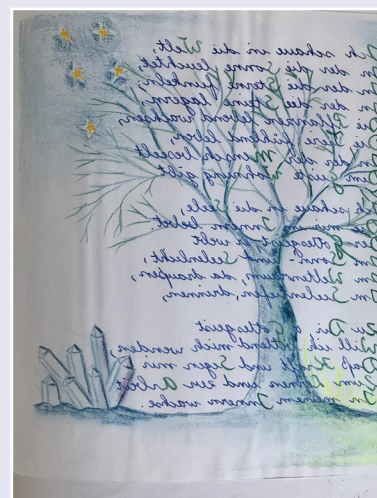 Ich schaue in die Welt,
In der die Sonne leuchtet,
In der die Sterne funkeln,
In der die Steine lagern,
Die Pflanzen lebend wachsen,
Die Tiere fühlend leben,
In der der Mensch beseelt
Wohnung gibt
schaue in die Seele
mir im Innern lebet.
Gottesgeist er webt
Im Sonn- und Seelnlicht
Im Weltenraum, da draußen,
In Seelentiefen, drinnen,
Zu Dir o Gottesgeist
Will ich bittend mich wenden
Daß Kraft und Segen mir
Zum Lernen und zur Arbeit
In meinem Innern wachse.